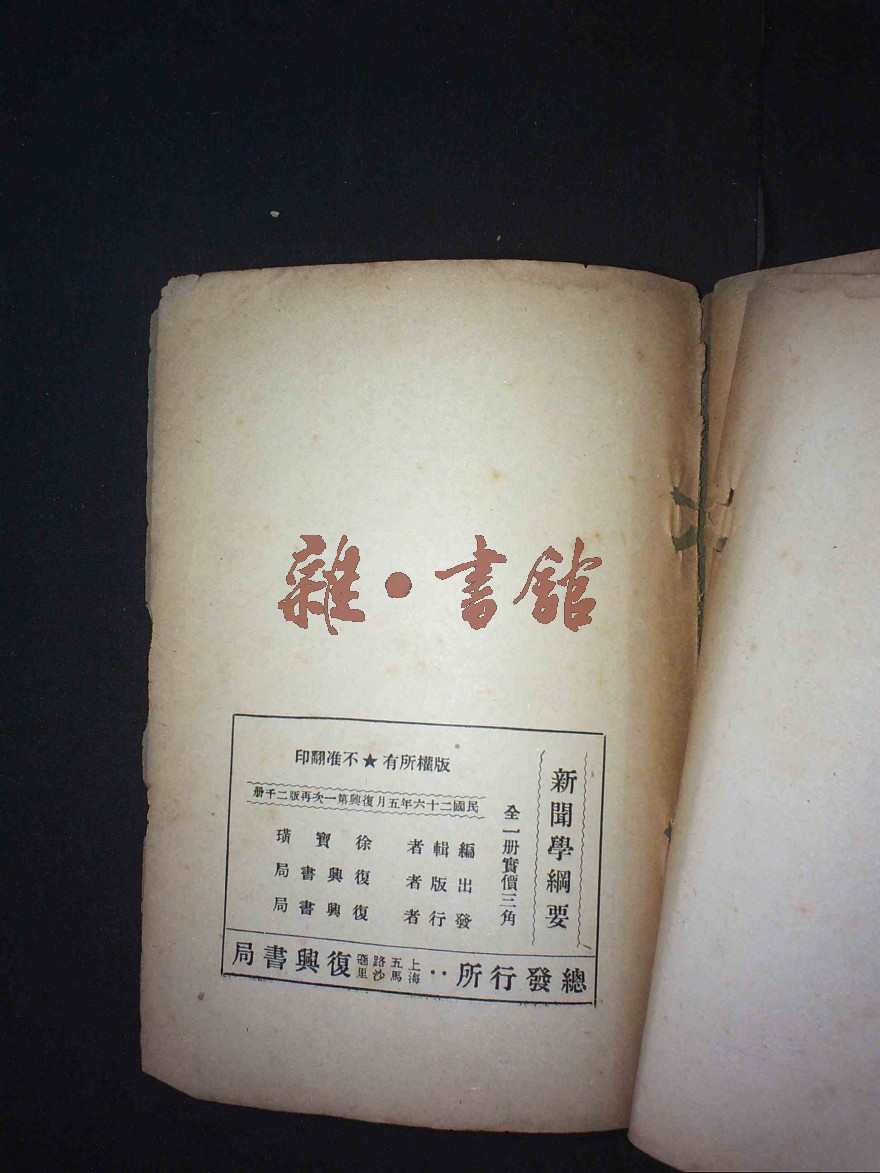 雜·書館
新聞學綱要
全一册實價三角
版權所有★不准翻印
民國二十六年五月復興第一次再版二千册
編輯者 徐寶璜
出版者 復興書局
發行者 復興書局
總發行所：上海五馬路沙遜里復興書局